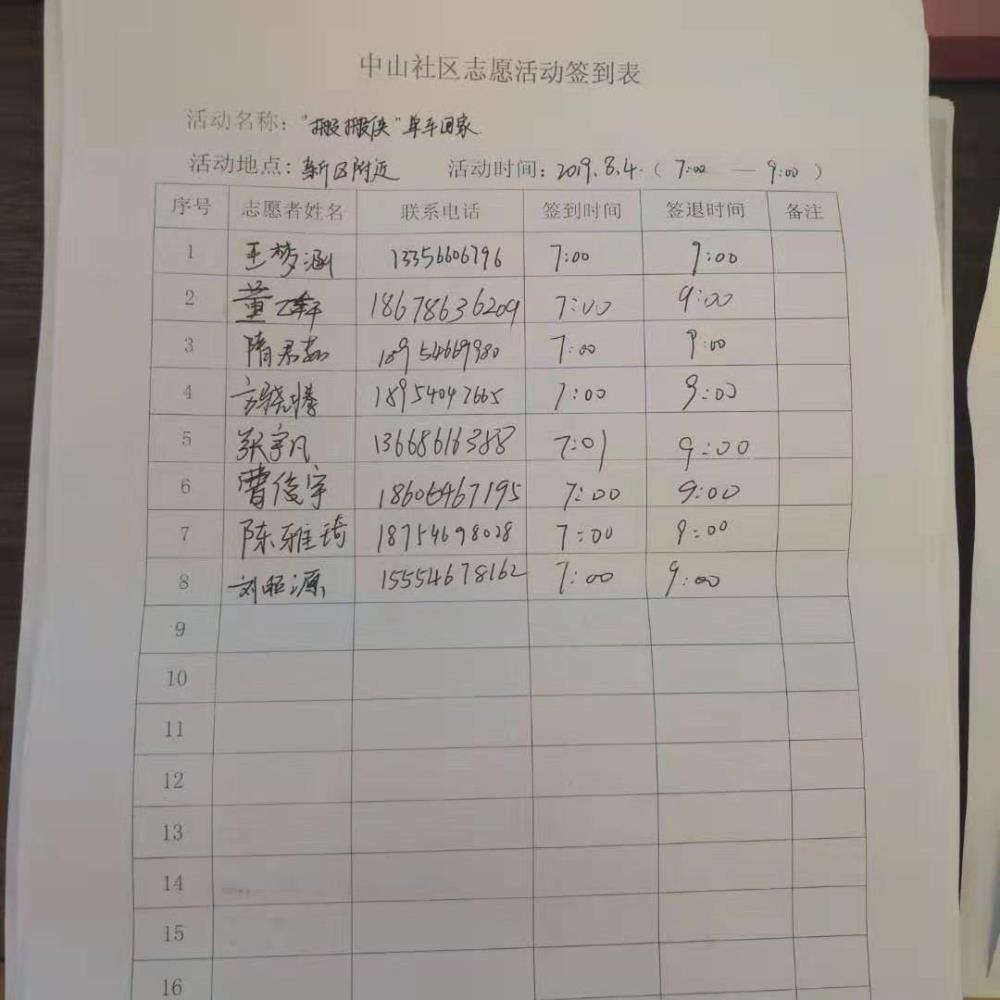 中山社区志愿活动签到表
活动名称："搬搬侠"单车回家
活动地点：新区附近 活动时间：2019.8.4.（7:00 — 9:00）
序号 志愿者姓名 联系电话 签到时间 签退时间 备注
1 王梦涵 13356606796 7:00 9:00
2 董乙轩 18678636209 7:00 9:00
3 隋君茹 18954669980 7:00 9:00
4 18954047665 7:00 9:00
5 张宇凡 13668616388 7:01 9:00
6 曹俊宇 18606467195 7:00 9:00
7 陈雅琦 18754698028 7:00 9:00
8 刘昭源 15554678162 7:00 9:00
9
10
11
12
13
14
15
16